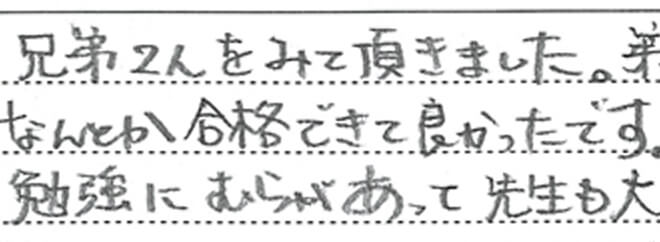 兄弟2人をみて頂きました。弟
なんとか合格できて良かったです。
勉強にむらがあって先生も大